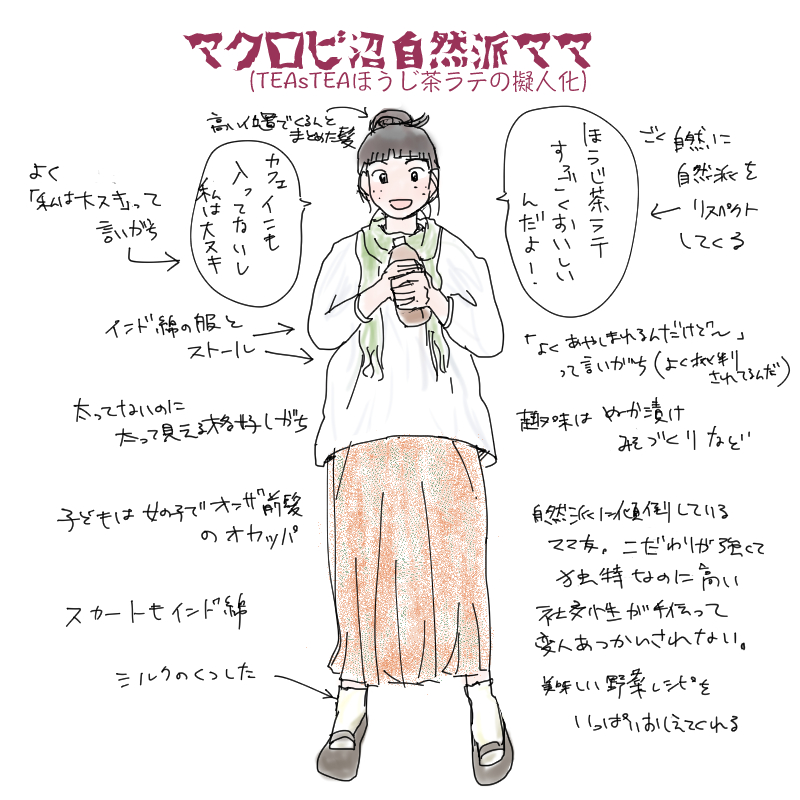 マクロビ沼自然派ママ
(TEAsTEAほうじ茶ラテの擬人化)
高い位置でくるんと
まとめた髪
ほうじ茶ラテ
すっごくおいしい
んだよ!
ごく自然に
自然派を
リスペクト
してくる
カフェインも
入ってないし
私は大スキ
よく
「私は大スキ」って
言いがち
インド綿の服と
ストール
「よくあやしまれるんだけど〜」
って言いがち(よく批判
されてるんだ)
太ってないのに
太って見える格好しがち
趣味はぬか漬け
みそづくりなど
子どもは女の子でオンザ前髪
のオカッパ
自然派に傾倒している
ママ友。こだわりが強くて
独特なのに高い
社交性が手伝って
変人あつかいされない。
スカートもインド綿
シルクのくつした
美味しい野菜レシピを
いっぱいおしえてくれる